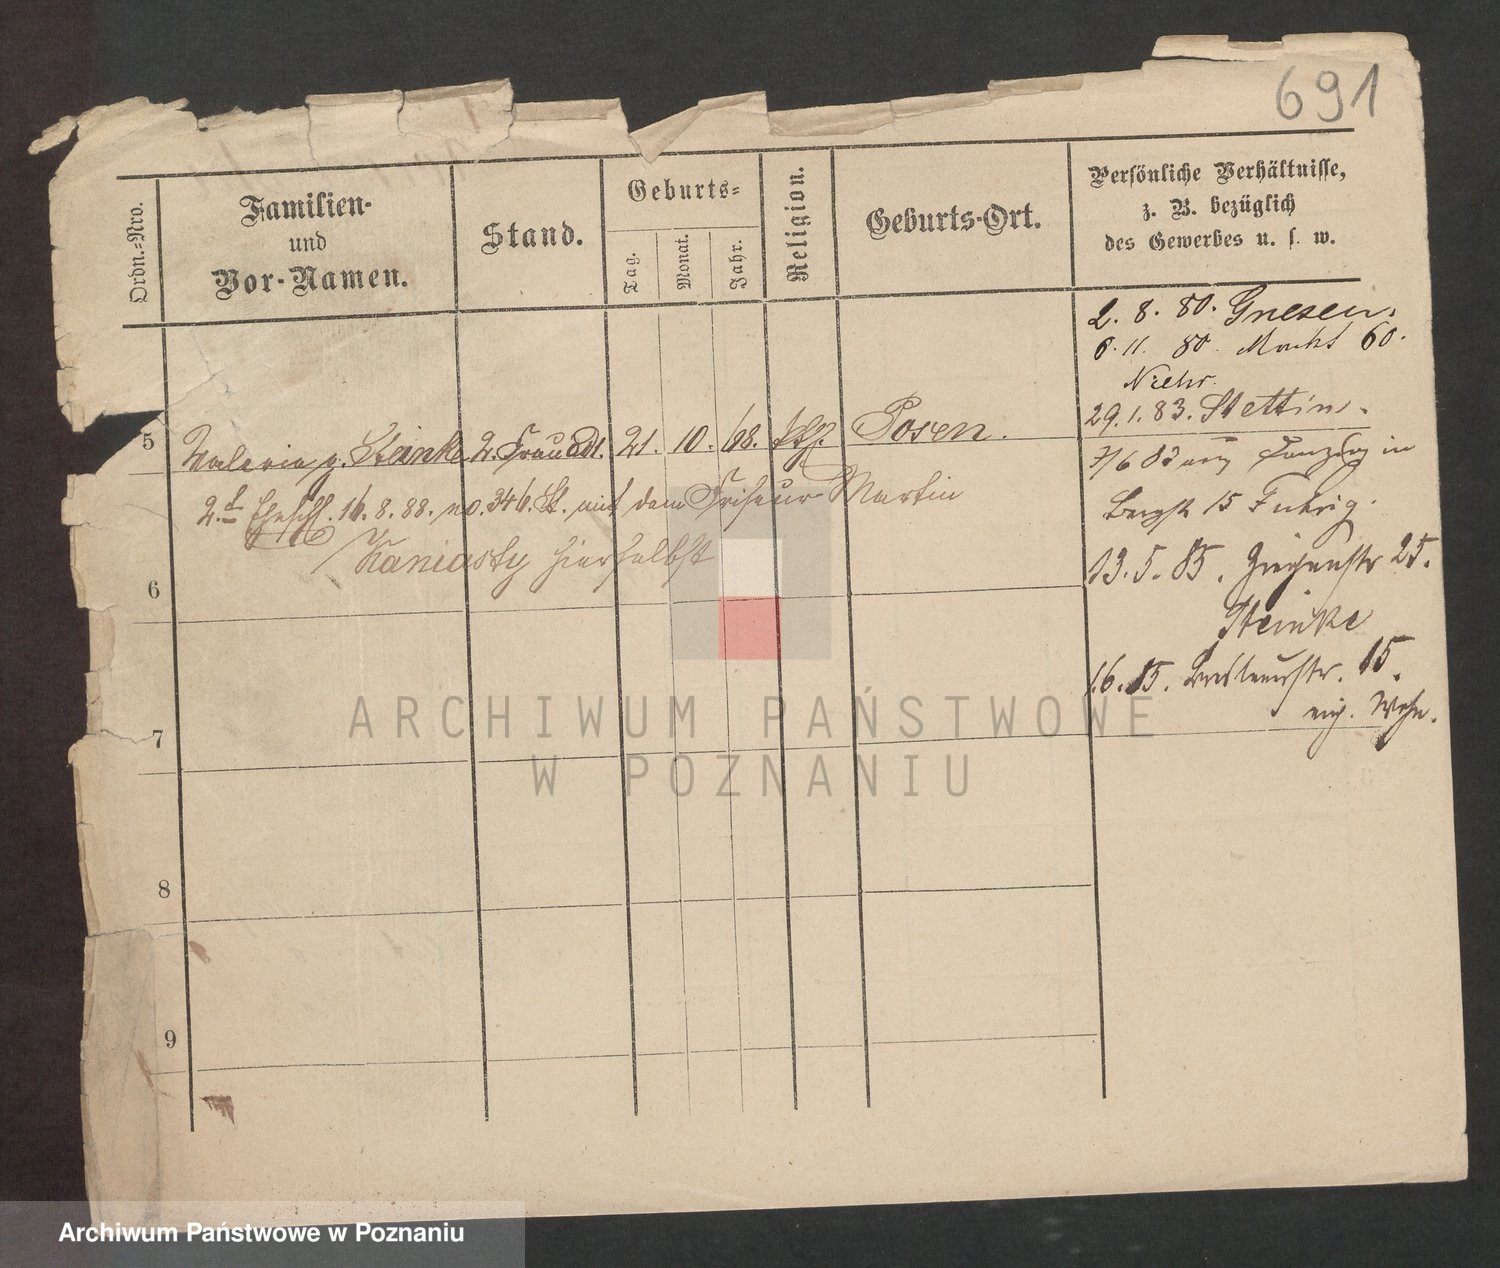 691
Ordn.-Nro.
Familien-
und
Vor-Namen.
Stand.
Geburts-
Tag.
Monat.
Jahr.
Religion.
Geburts-Ort.
Persönliche Verhältnisse,
z. B. bezüglich
des Gewerbes u. s. w.
2. 8. 80. Gnesen.
6. 11. 80 Markt 60.
29. 1. 83. Stettin.
5 Valeria g. Steinke 2. Frau 21. 10. 68. Posen.
in
15
2. Eheschl. 16. 8. 88. no. 346. St. mit dem Friseur Martin
Kaniasty hierselbst
13. 5. 85. 25.
Steinke
1.6. 85. 15.
Wohn.
6
7
8
9
ARCHIWUM PAŃSTWOWE
W POZNANIU
Archiwum Państwowe w Poznaniu